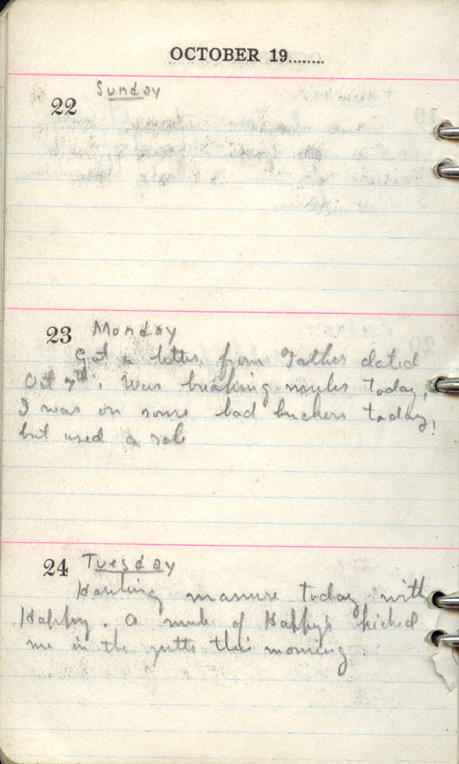 OCTOBER 19........
22 Sunday
23 Monday
Got a letter from Father dated
Oct 7th. Was breaking mules today,
I was on some bad buckers today,
but used a
24 Tuesday
Hauling manure today with
Happy. A mule of Happys kicked
me in the gutts this morning